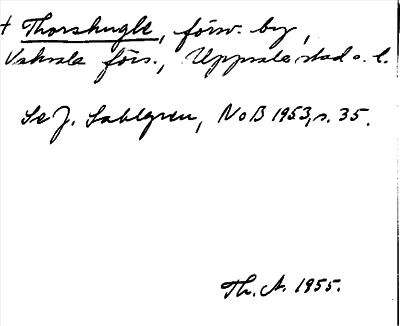 † Thorshugle, försv. by,
Vaksala förs., Uppsala stad o. l.
Se J. Sahlgren, NoB 1953, s. 35.
Th. A. 1955.